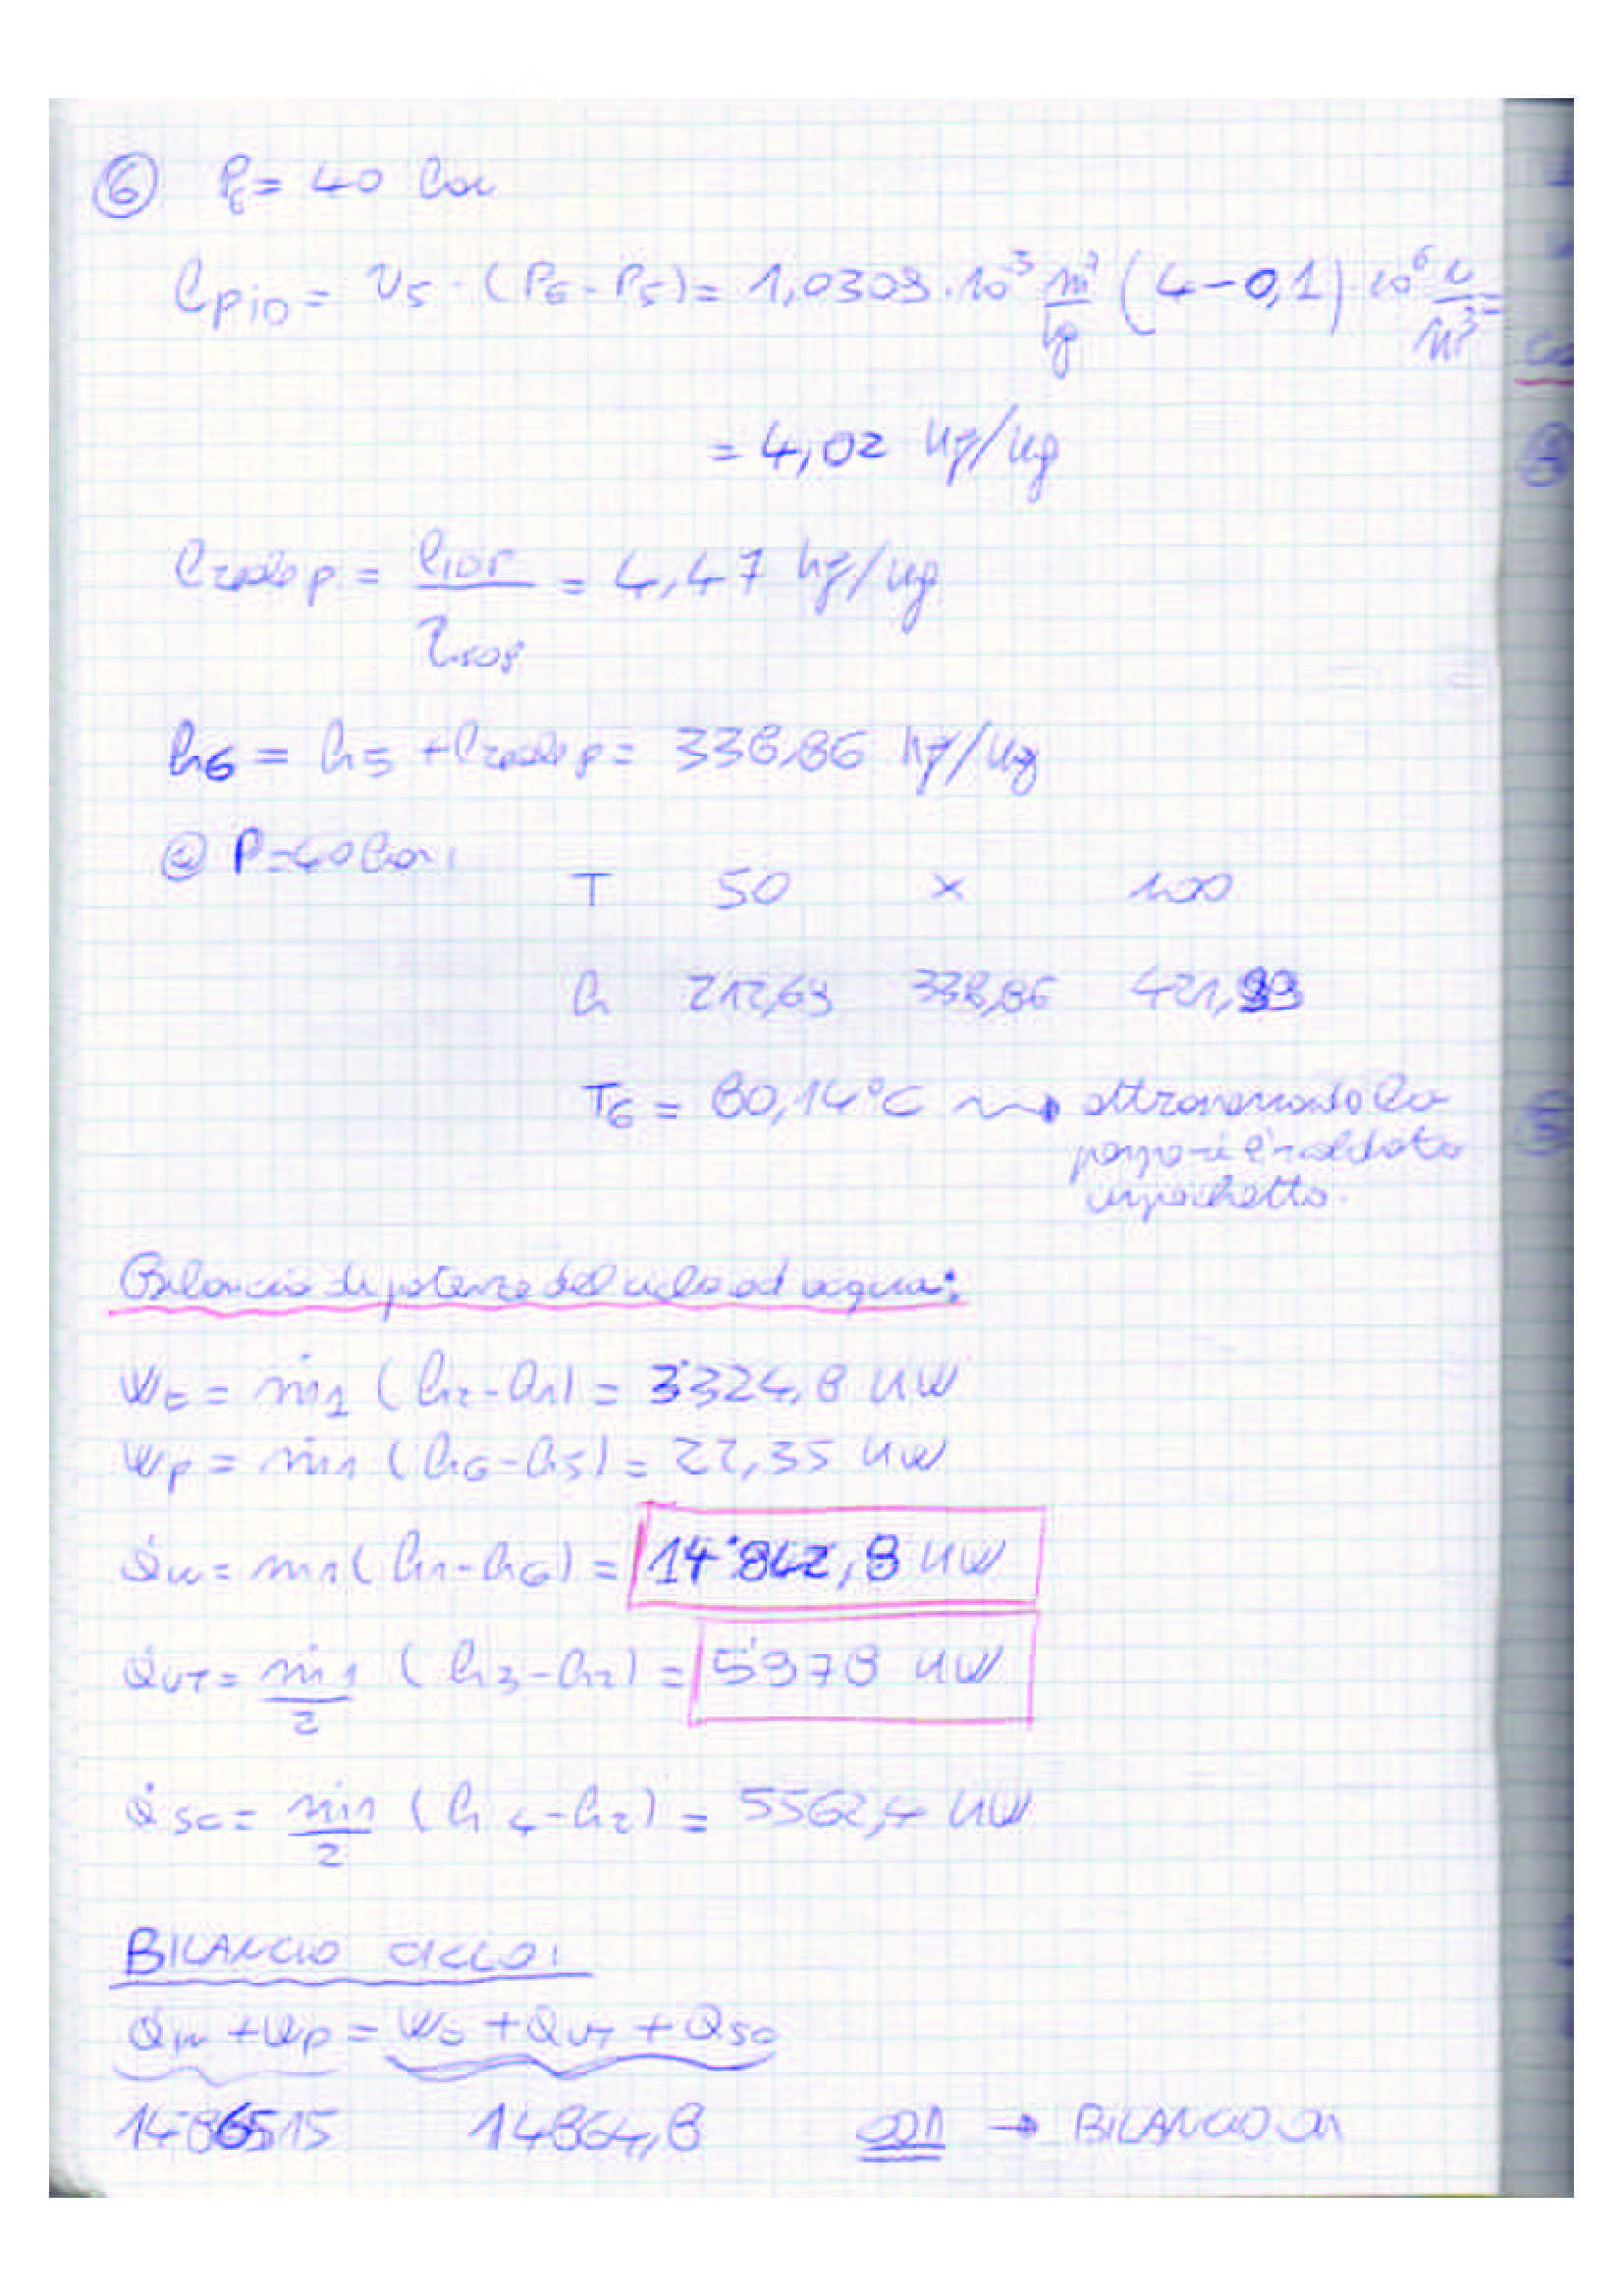 ⑥ P6 = 40 bar
lpid = v5 · (P6 - P5) = 1,0309 · 10^-3 m³/kg (4 - 0,1) · 10^6 N/m³ =
= 4,02 kJ/kg
lreale p = lidp / ηisop = 4,47 kJ/kg
h6 = h5 + lreale p = 338,86 kJ/kg
@ P = 40 bar:
T 50 x 100
h 212,69 338,86 421,99
T6 = 80,14°C ⇝ attraversando la
pompa si è scaldata
un pochetto.
Bilancio di potenze del ciclo ad acqua:
Wt = ṁ1 (h2 - h1) = 3'324,8 kW
Wp = ṁ1 (h6 - h5) = 22,35 kW
Q̇in = ṁ1 (h1 - h6) = 14'842,8 kW
Q̇UT = ṁ1/2 (h3 - h2) = 5'978 kW
Q̇SC = ṁ1/2 (h4 - h2) = 5562,4 kW
BILANCIO CICLO:
Qin + Wp = Wt + QUT + QSC
14865,15 14864,8 → BILANCIO OK